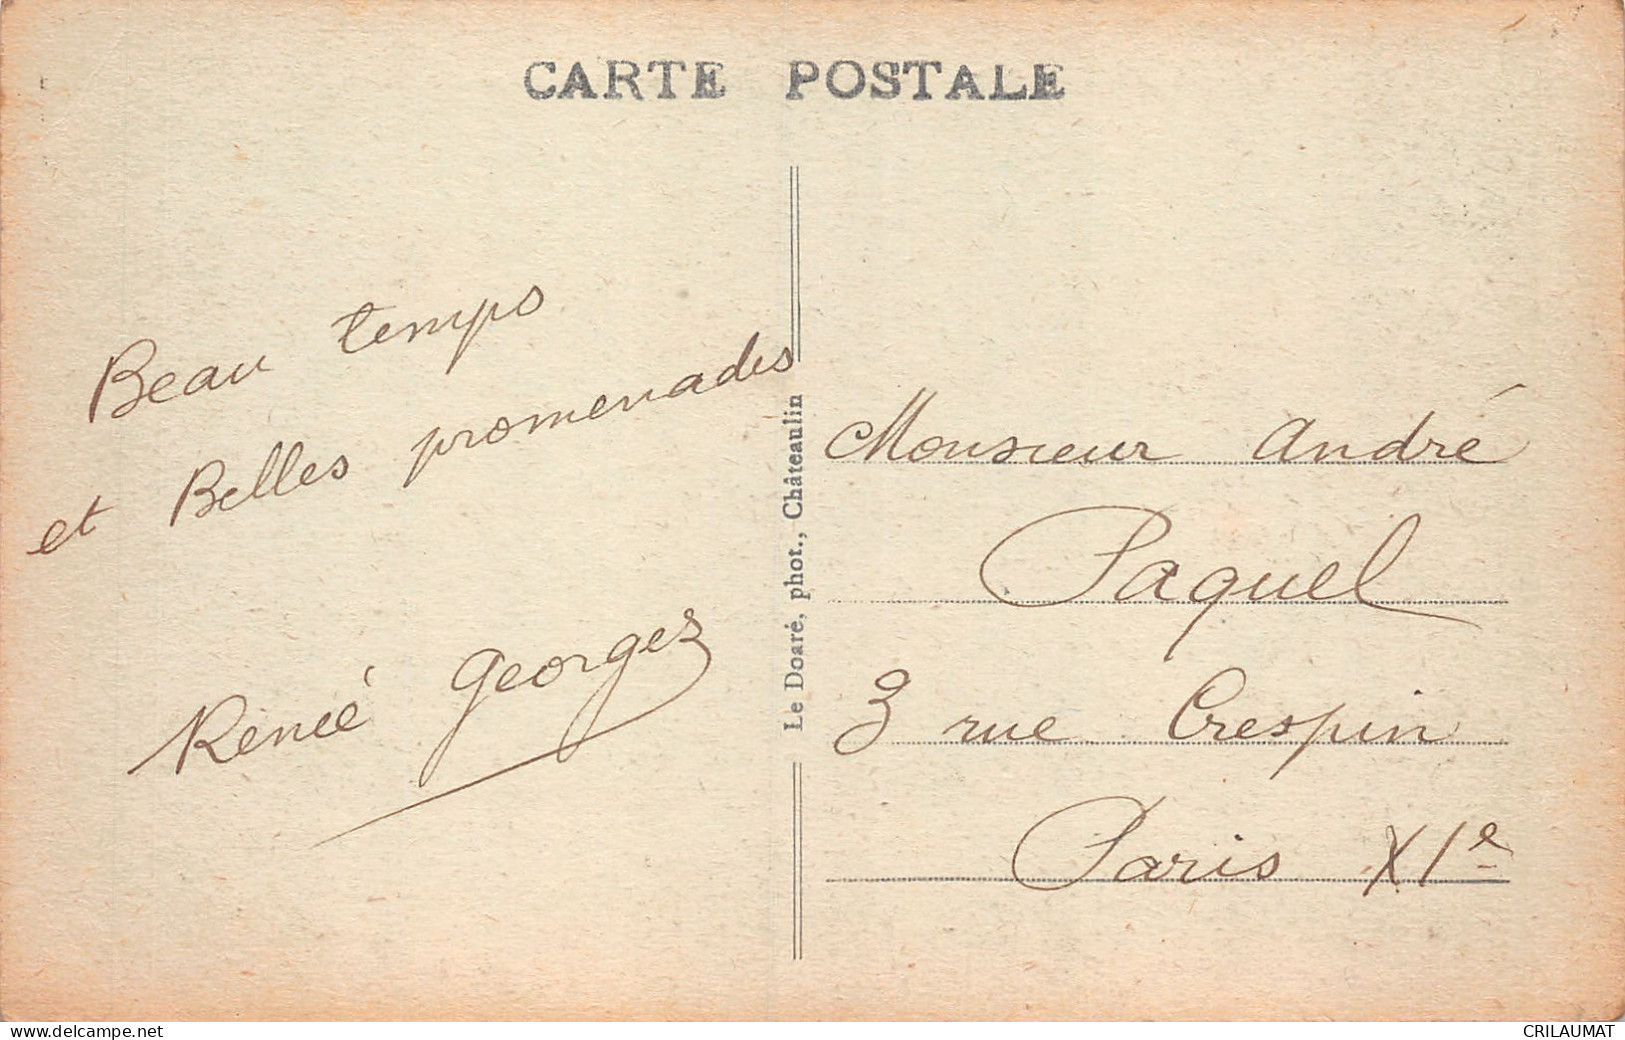 CARTE POSTALE
Beau temps
et Belles promenades
Renée Georges
Le Doaré, phot., Châteaulin
Monsieur André
Paquel
3 rue Crespin
Paris XIe
www.delcampe.net
CRILAUMAT